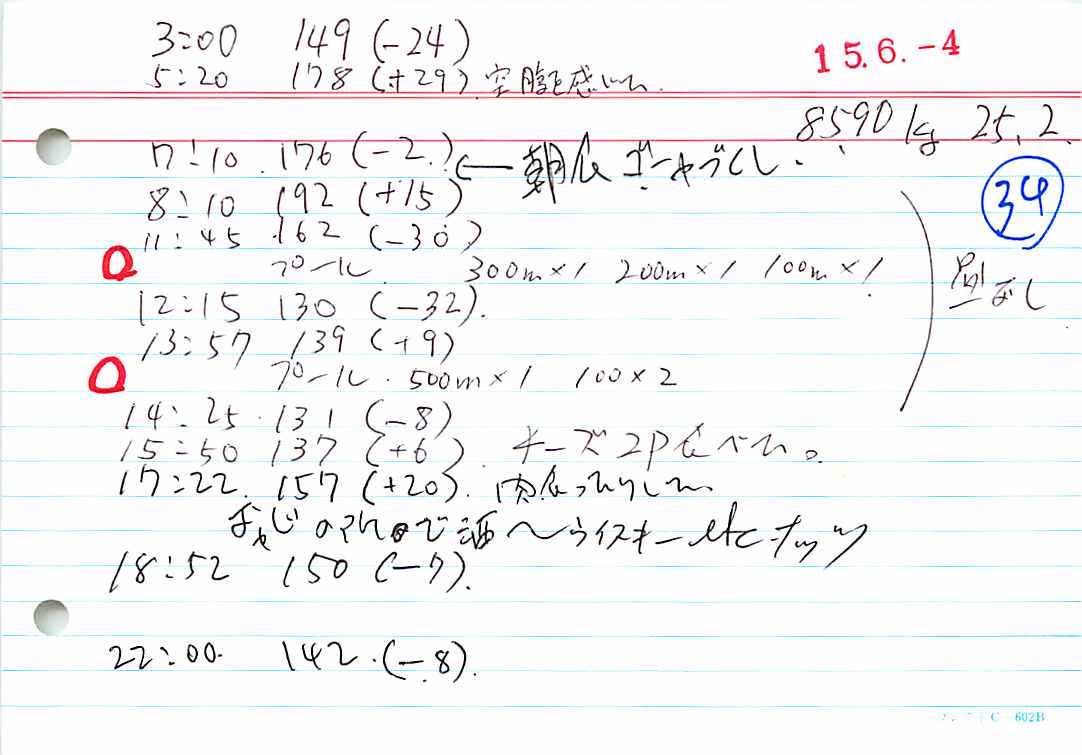 15.6.-4
3:00 149 (-24)
5:20 178 (+29) 空腹を感じた.
8590kg 25.2
7:10 176 (-2.) ← 朝食 ゴーヤづくし
34
8:10 192 (+15)
11:45 162 (-30)
プール 300m×1 200m×1 100m×1
昼なし
12:15 130 (-32).
13:57 139 (+9)
プール. 500m×1 100×2
14:25 131 (-8)
15:50 137 (+6). チーズ2P食べた。
17:22. 157 (+20).
で酒へウイスキーetcナッツ
18:52 150 (-7).
22:00 142.(-8).
C-602B